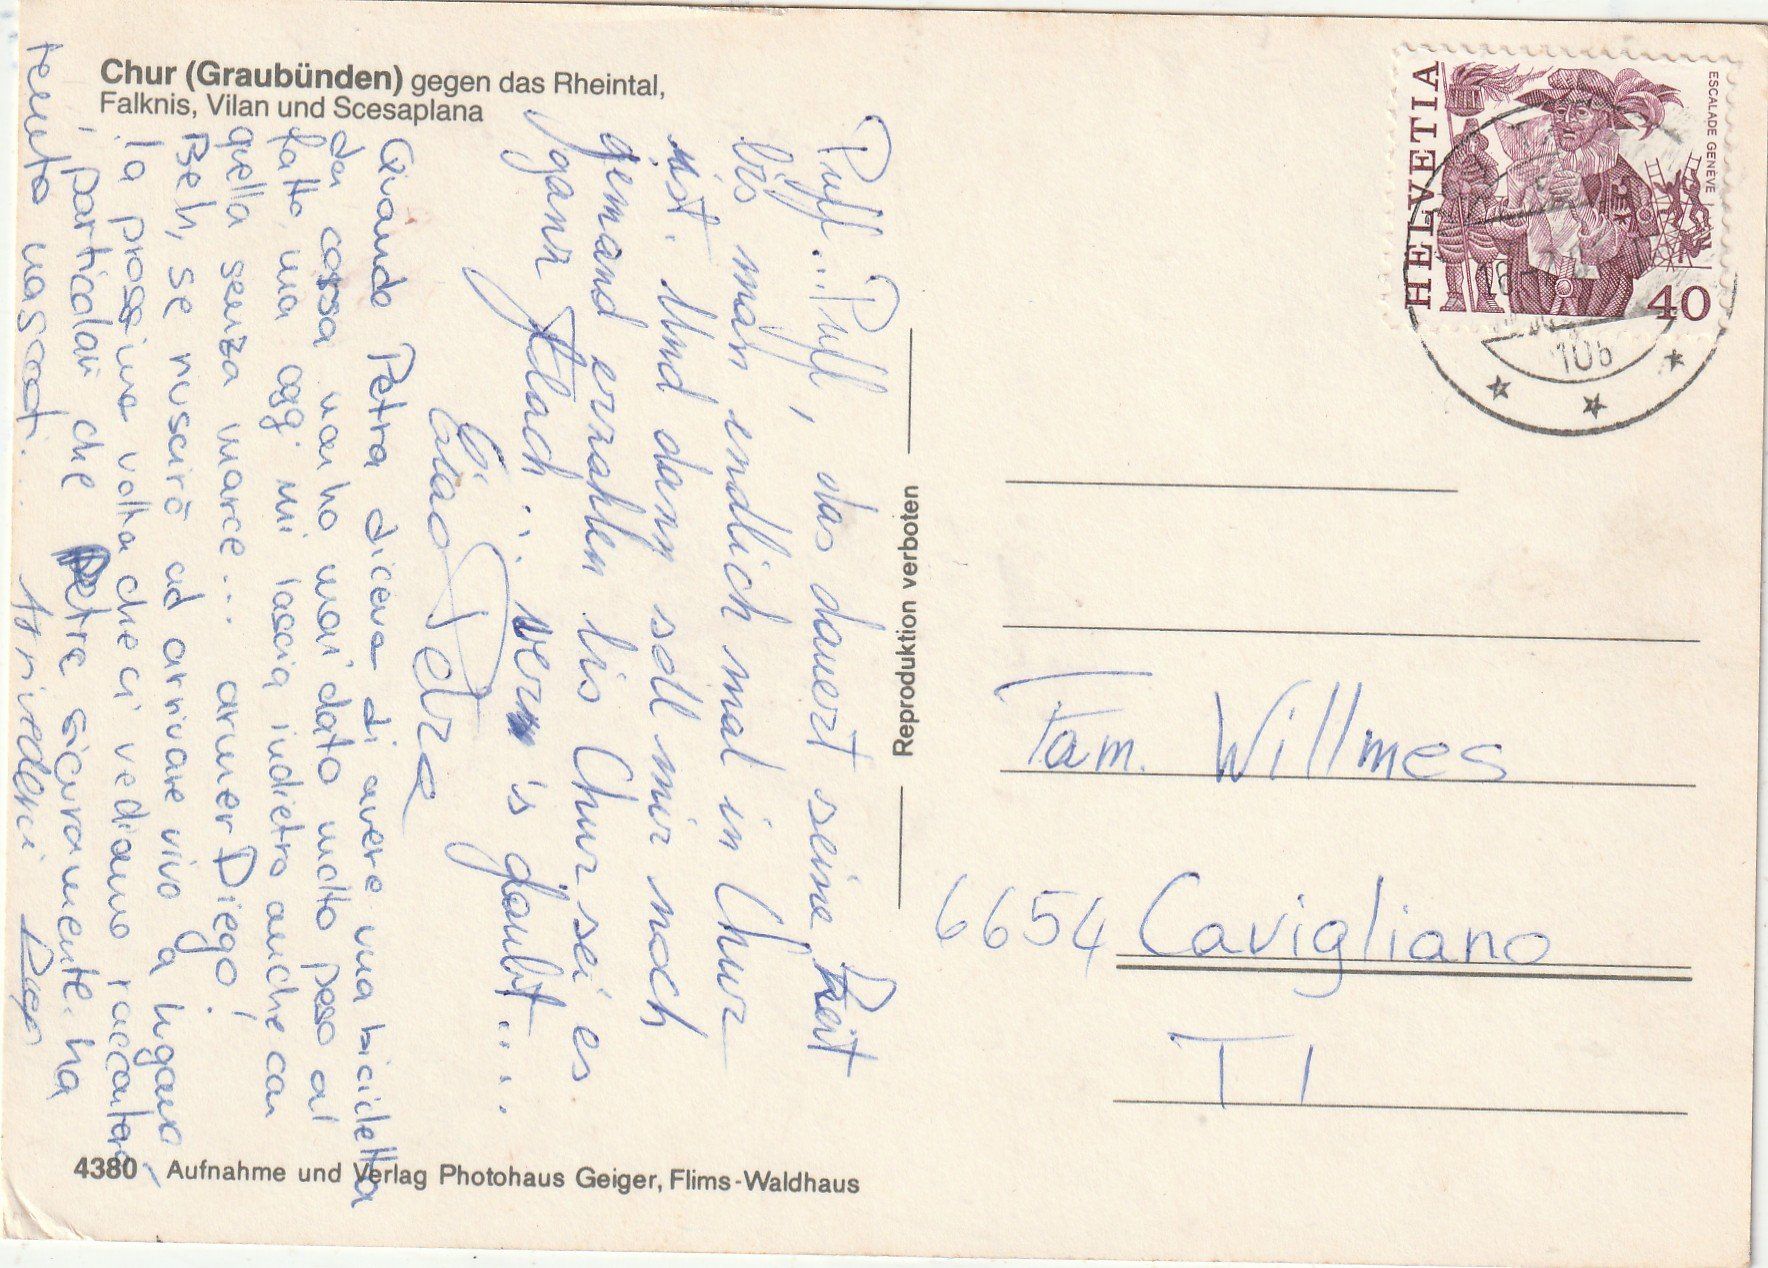 Chur (Graubünden) gegen das Rheintal,
Falknis, Vilan und Scesaplana
Puff...Puff, das dauert seine Zeit
bis man endlich mal in Chur
ist. Und dann soll mir noch
jemand erzählen bis Chur sei es
ganz flach... wern's glaubt...
Ciao Petra
Quando Petra diceva di avere una bicicletta
da corsa non ho mai dato molto peso al
fatto, ma oggi mi lascia indietro anche con
quella senza marce... armer Diego!
Beh, se riuscirò ad arrivare vivo a Lugano
la prossima volta che ci vediamo racconterò
i particolari che Petra sicuramente ha
tenuto nascosti. Arrivederci Diego
4380 Aufnahme und Verlag Photohaus Geiger, Flims-Waldhaus
Reproduktion verboten
HELVETIA
ESCALADE GENEVE
40
Fam. Willmes
6654 Cavigliano
TI